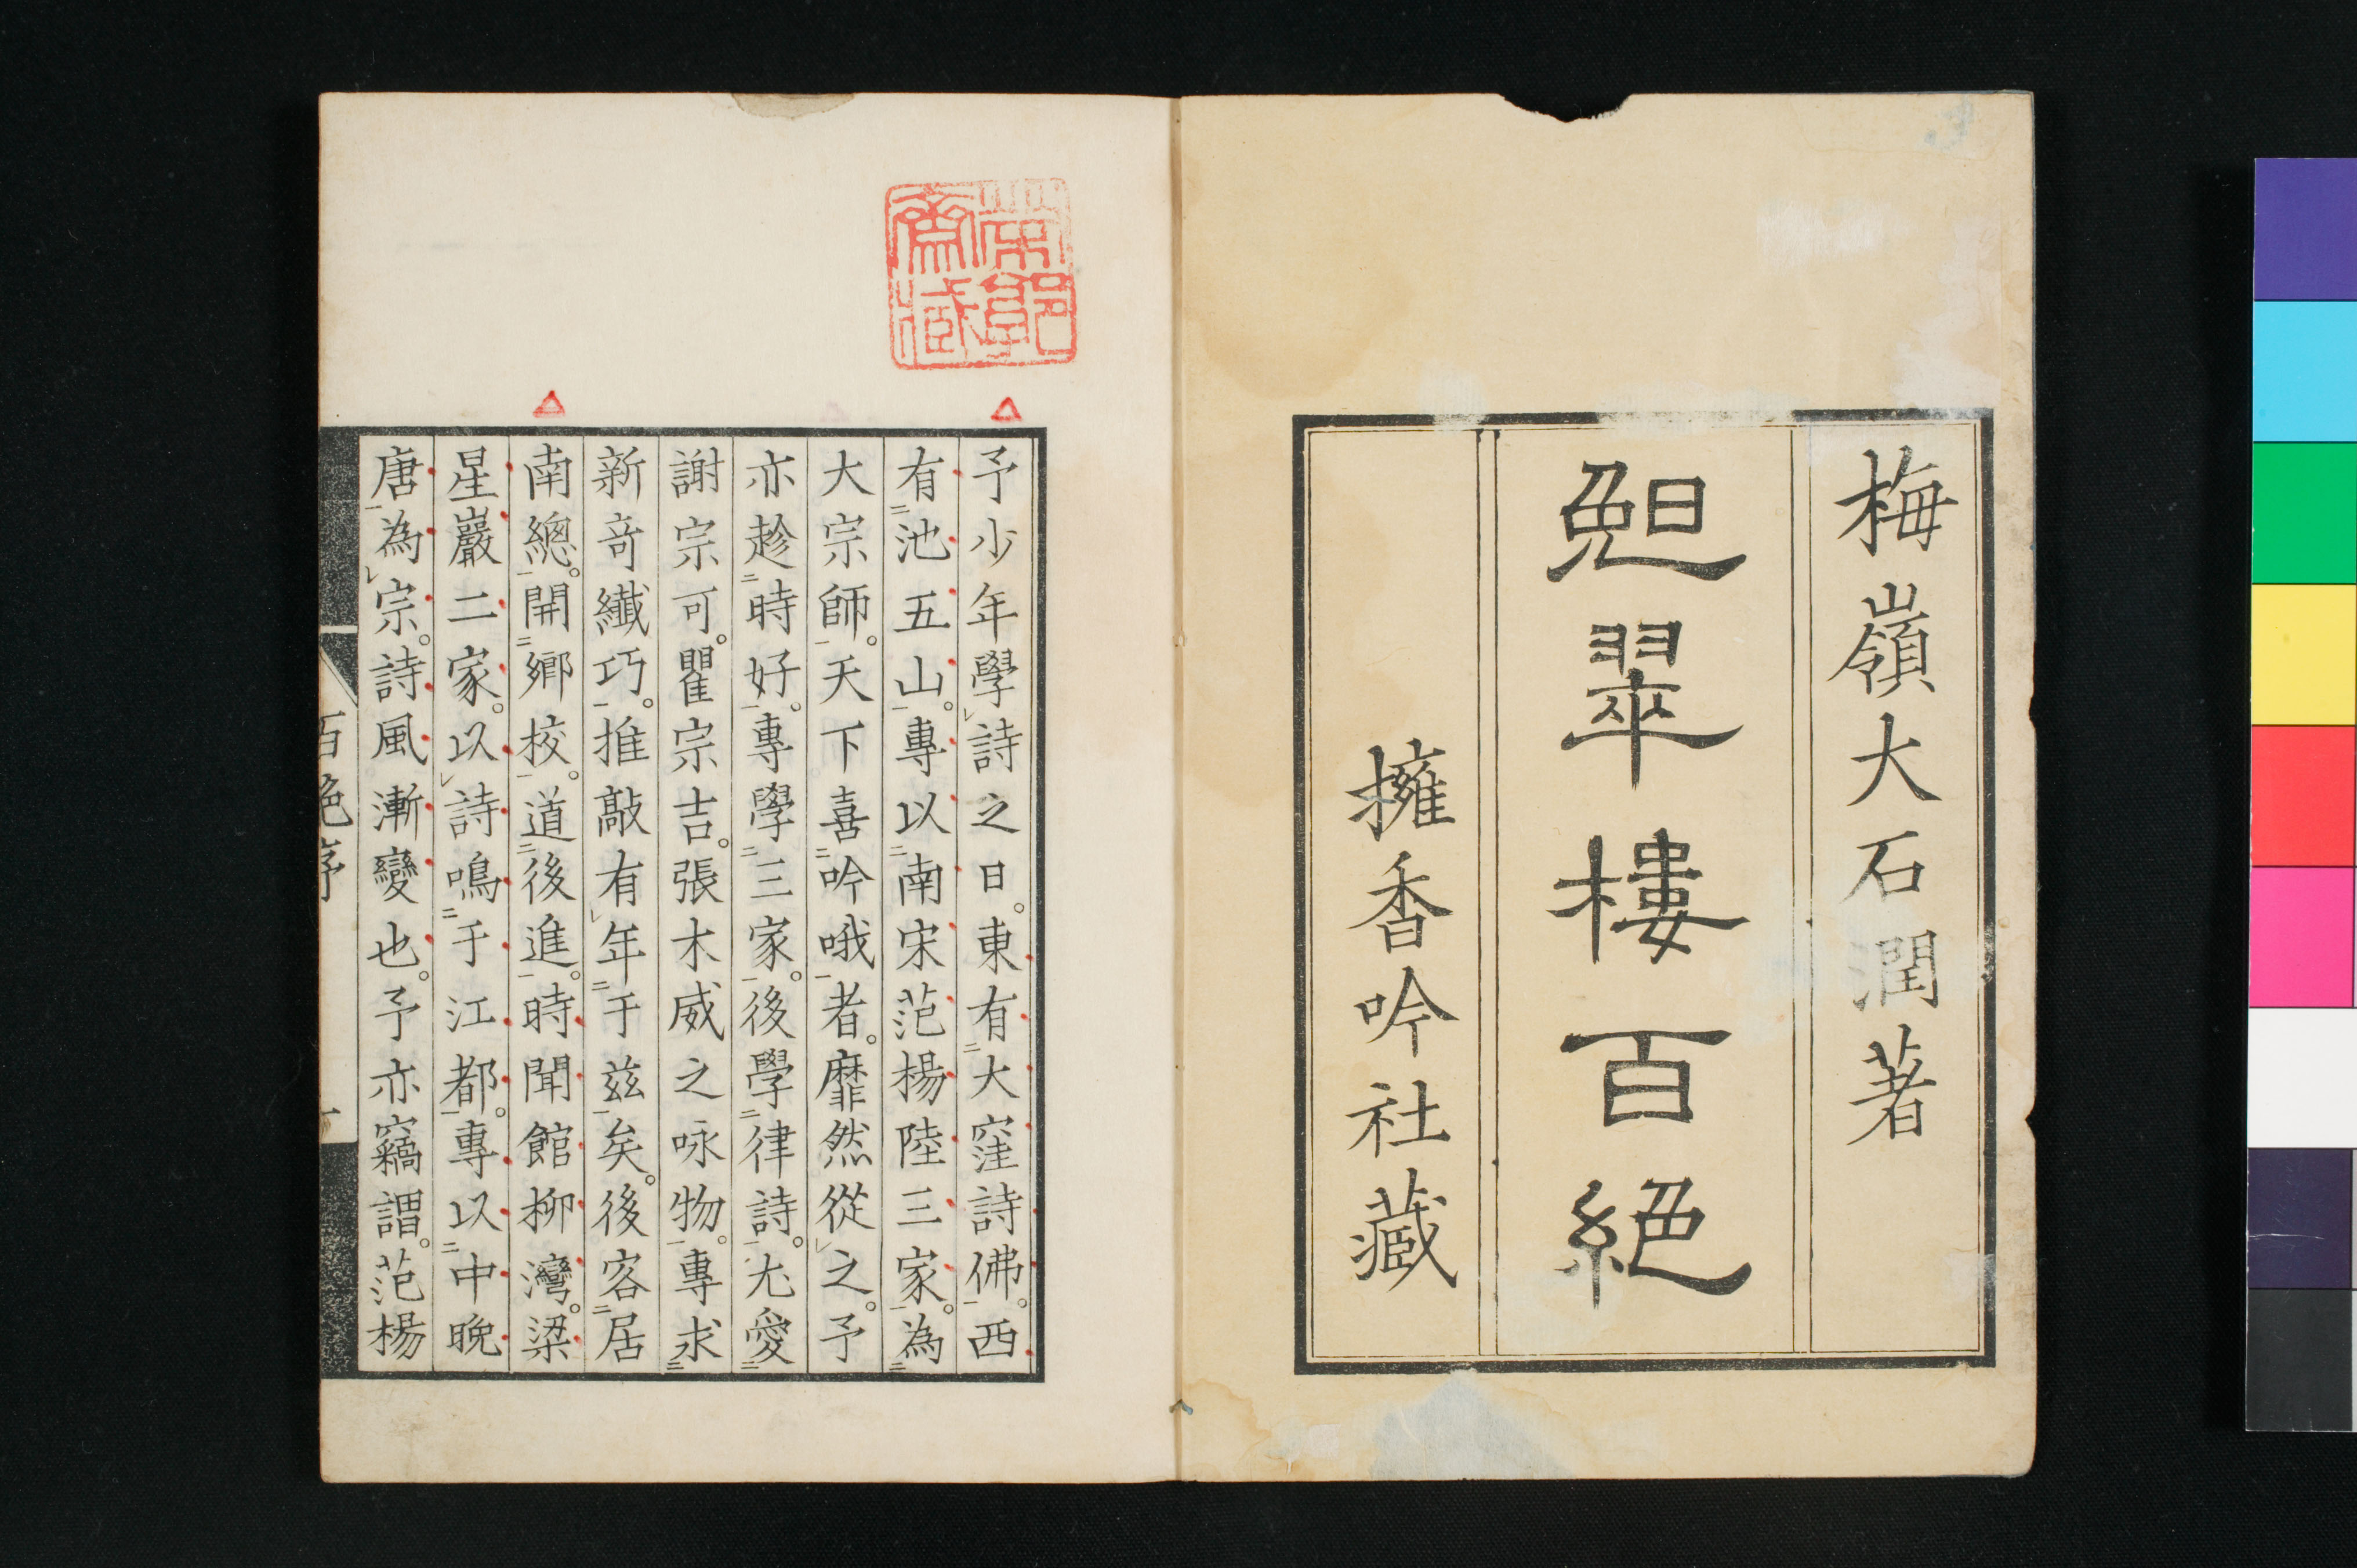 梅嶺大石潤著
晩翠樓百絕
擁香吟社藏
帶郭齋藏
予少年學詩之日。東有大窪詩佛。西
有池五山。專以南宋范楊陸三家。為
大宗師。天下喜吟哦者。靡然從之。予
亦趁時好。專學三家。後學律詩。尤愛
謝宗可。瞿宗吉。張木威之咏物。專求
新奇纎巧。推敲有年于兹矣。後客居
南總。開鄉校。道後進。時聞館柳灣。梁
星巖二家。以詩鳴于江都。專以中晚
唐為宗。詩風漸變也。予亦竊謂。范楊
百絶序
一